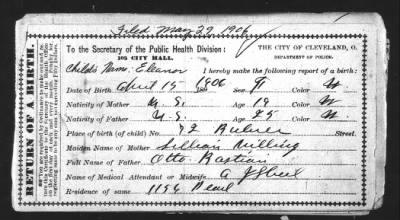 Filed May 29 1906
To the Secretary of the Public Health Division:
THE CITY OF CLEVELAND, O.
102 CITY HALL.
DEPARTMENT OF POLICE.
Child's Name, Eleanor I hereby make the following report of a birth:
Date of Birth April 15 1906 Sex F Color W
Nativity of Mother U. S. Age 19 Color W
Nativity of Father U. S. Age 25 Color W
Place of birth (of child) No. 72 Street.
Maiden Name of Mother Lillian Milling
Full Name of Father Otto Bastian
Name of Medical Attendant or Midwife A J
Residence of same 1156 Pearl
RETURN OF A BIRTH.